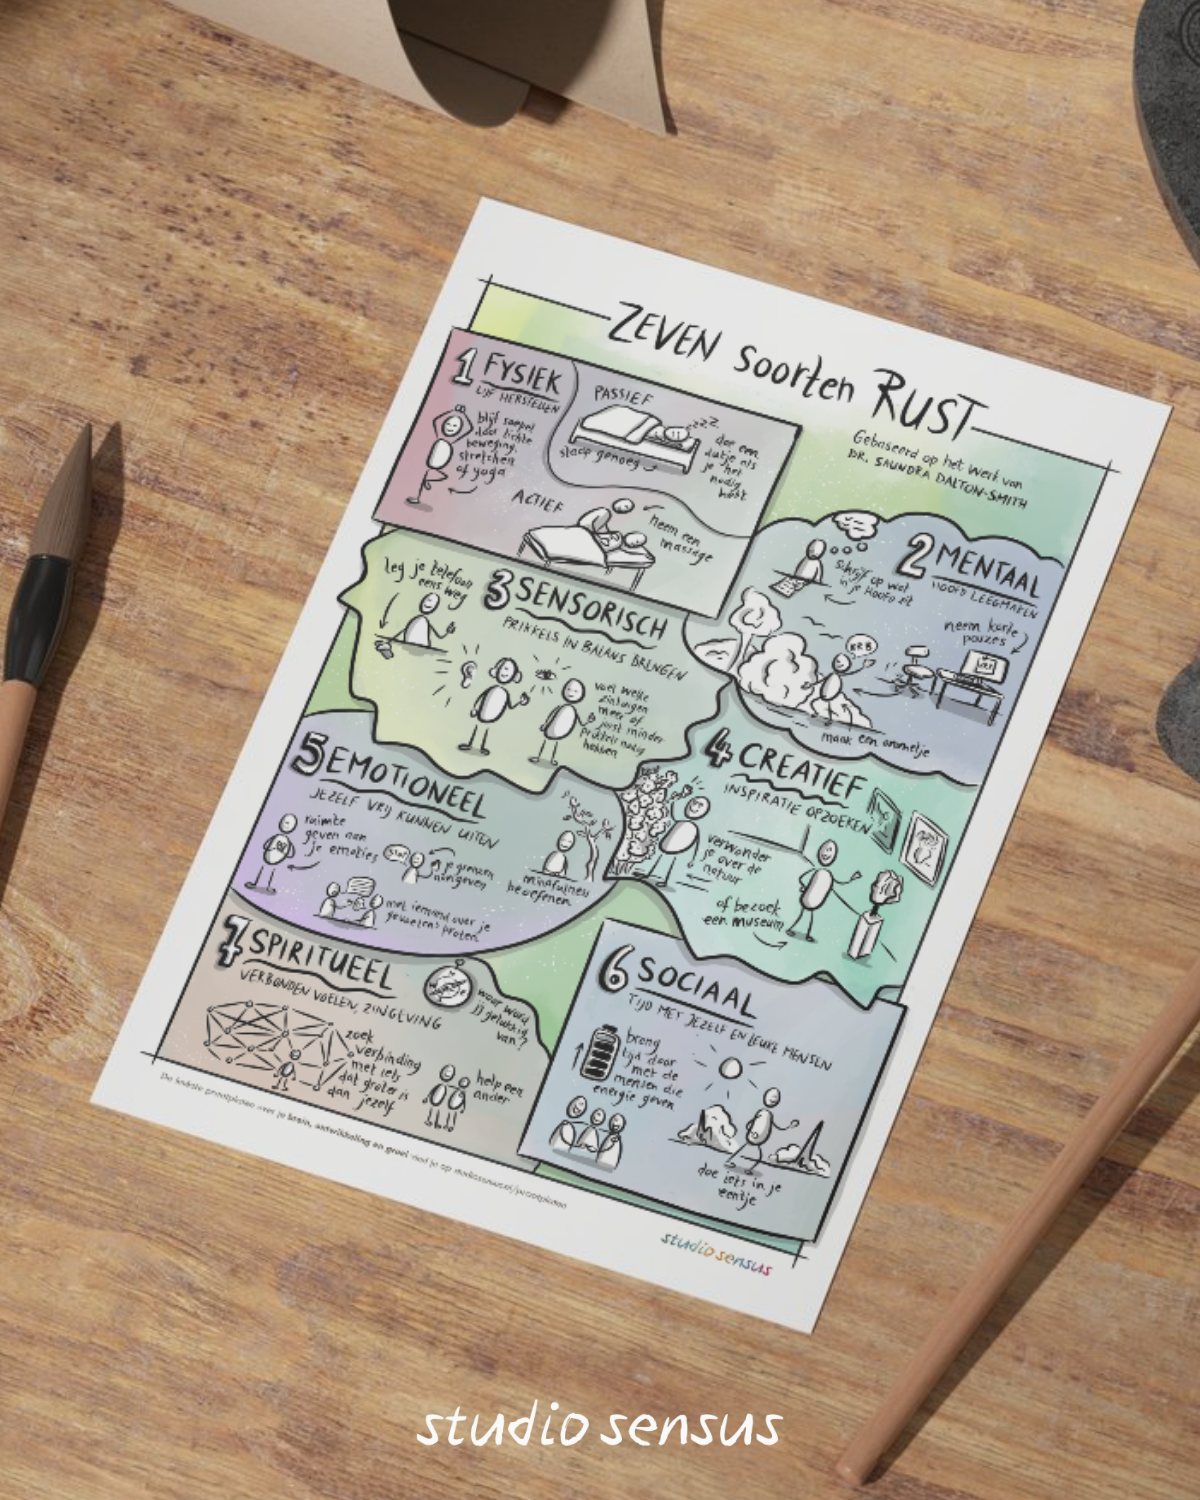 ZEVEN soorten RUST
Gebaseerd op het werk van
DR. SAUNDRA DALTON-SMITH
1 FYSIEK
LIJF HERSTELLEN
blijf soepel
door lichte
beweging,
stretchen
of yoga
PASSIEF
slaap genoeg
zzz
doe een
dutje als
je het
nodig
hebt
ACTIEF
neem een
massage
2 MENTAAL
HOOFD LEEGMAKEN
schrijf op wat
in je hoofd zit
neem korte
pauzes
BRB
maak een ommetje
3 SENSORISCH
PRIKKELS IN BALANS BRENGEN
leg je telefoon
eens weg
voel welke
zintuigen
meer of
juist minder
prikkels nodig
hebben
4 CREATIEF
INSPIRATIE OPZOEKEN
verwonder
je over de
natuur
of bezoek
een museum
5 EMOTIONEEL
JEZELF VRIJ KUNNEN UITEN
ruimte
geven aan
je emoties
je grenzen
aangeven
met iemand over je
gevoelens praten
mindfulness
beoefenen
6 SOCIAAL
TIJD MET JEZELF EN LEUKE MENSEN
breng
tijd door
met de
mensen die
energie geven
doe iets in je
eentje
7 SPIRITUEEL
VERBONDEN VOELEN, ZINGEVING
waar word
jij gelukkig
van?
zoek
verbinding
met iets
dat groter is
dan jezelf
help een
ander
De leukste praatplaten over je brein, ontwikkeling en groei vind je op studiosensus.nl/praatplaten
studio sensus
studio sensus